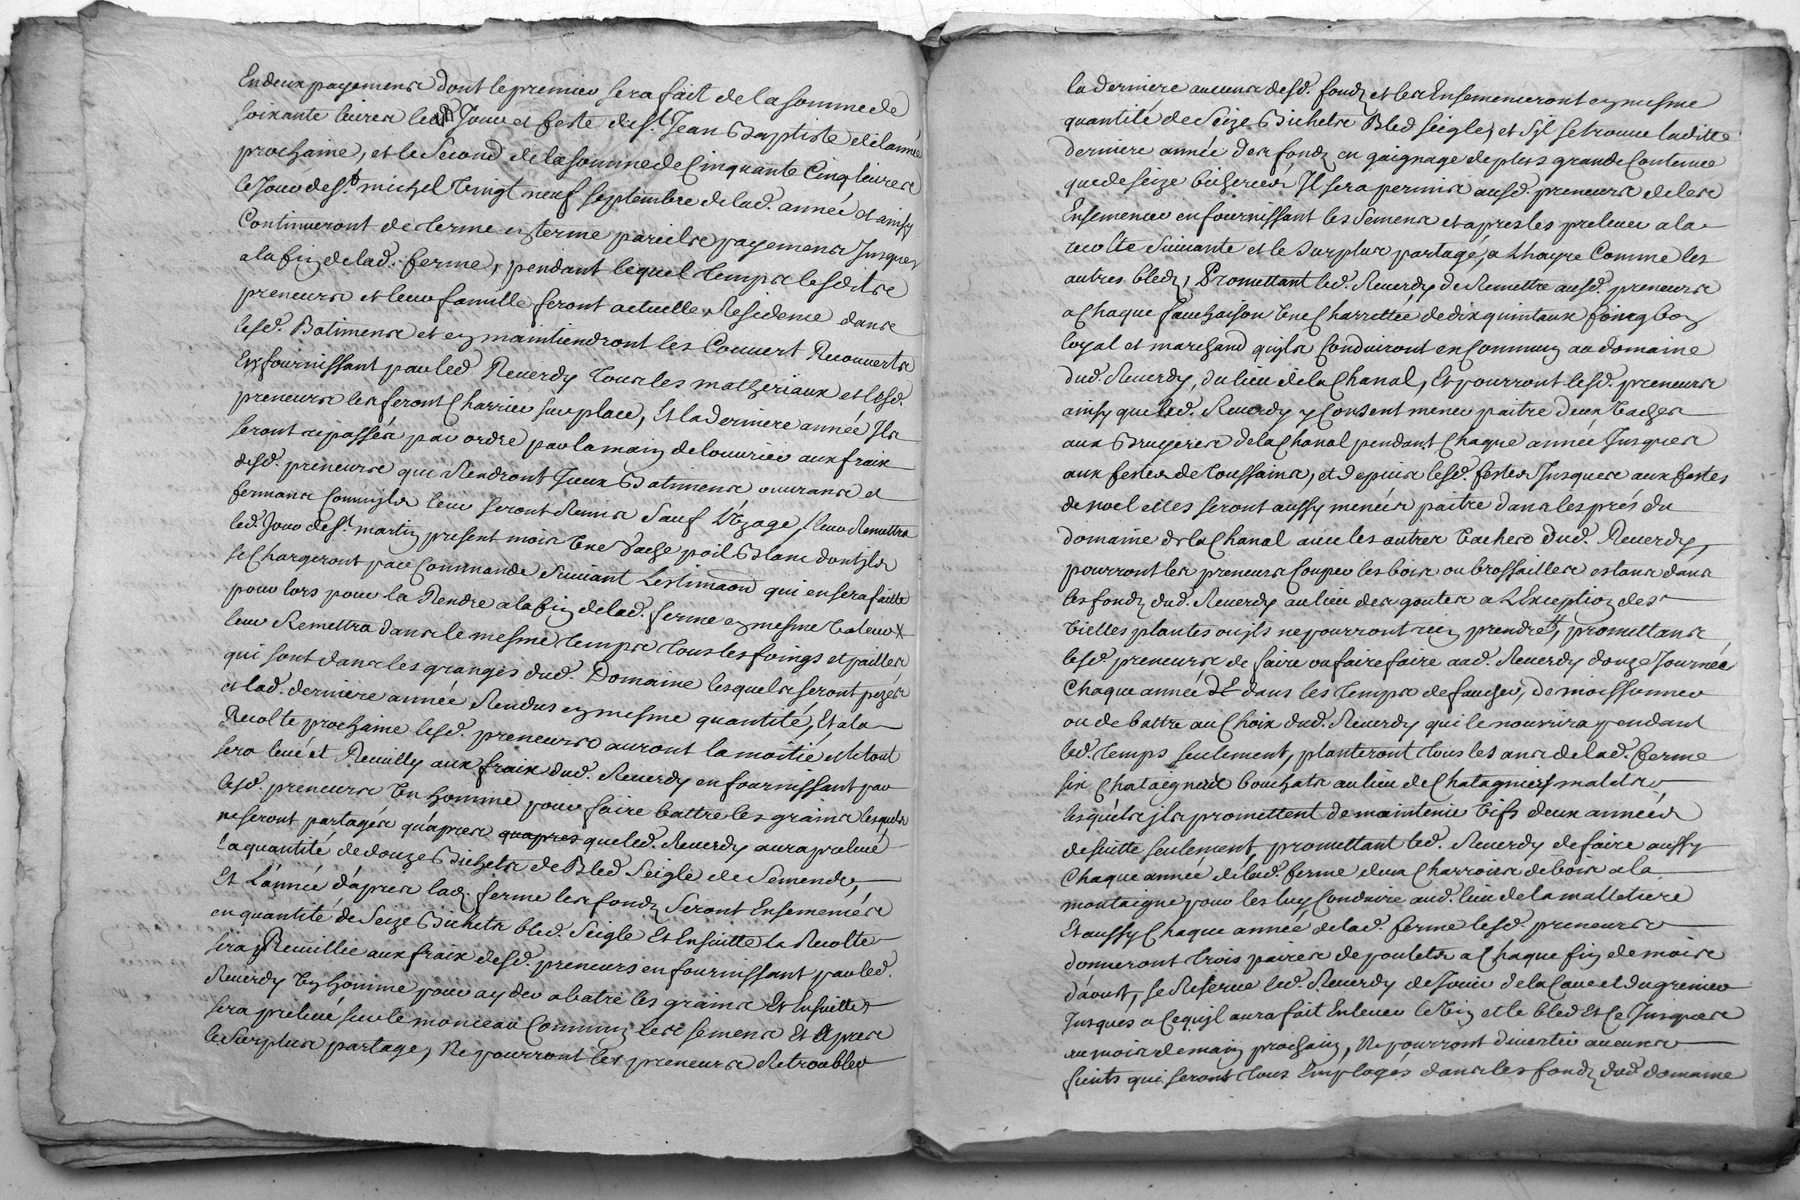 En deux payemens dont le premier sera fait de la somme de
soixante livres le Jour et feste de st. Jean Baptiste de lannée
prochaine, et le Second de la somme de Cinquante Cinq livres
le Jour de st. michel vingt neuf septembre de lad. année et ainsy
Continueront de terme en terme pareils payemens Jusques
a la fin de lad. ferme, pendant lequel temps lesdits
preneurs et leur famille feront actuelle Residence dans
lesd. Batimens et en maintiendront les Couvert Recouverts
En fournissant par led. Reverdy tous les matheriaux et lesd.
preneurs les feront Charrier sur place, Et la derniere année Ils
seront repassés par ordre par la main de louvrier aux fraix
desd. preneurs qui Rendront Iceux Batimens ouvrans et
fermans Comm'ils leur seront Remis Sauf L'Uzage, Leur Remettra
led. Jour de st. martin present mois Une Vache poil Blanc dont ils
se Chargeront par Commande Suivant Lestimaon qui en sera faitte
pour lors pour la Rendre a la fin de lad. ferme en mesme Valeur
leur Remettra dans le mesme temps tous les foings et pailles
qui sont dans les granges dud. Domaine lesquels seront pezés
et lad. derniere année Rendus en mesme quantité, Et a la
Recolte prochaine lesd. preneurs auront la moitié et le tout
sera levé et Recuilly aux fraix dud. Reverdy en fournissant par
lesd. preneurs Un homme pour faire battre les grains lesquels
ne seront partagés qu'apres quapres que led. Reverdy aura prelevé
la quantité de douze Bichets de Bled Seigle de Semence,
Et L'année d'apres lad. ferme les fonds Seront Ensemencés
en quantité de Seize Bichets bled Seigle Et Ensuitte la Recolte
sera Recuillie aux fraix desd. preneurs en fournissant par led.
Reverdy Un homme pour ayder a batre les grains Et Ensuitte
sera prelevé sur le monceau Commun les semens Et Apres
le Surplus partagé, Ne pourront les preneurs Retroubler
la derniere aucuns desd. fonds et les Ensemenceront en mesme
quantité de Seize Bichets Bled seigle, et S'il se trouve laditte
derniere année des fonds en gaignage de plus grande Contenue
que de seize bicherées Il sera permis ausd. preneurs de les
Ensemencer en fournissant les Semens et apres les prelever a la
recolte Suivante et le Surplus partagé, a L'hayre Comme les
autres bleds, Promettant led. Reverdy de Remettre ausd. preneurs
a Chaque fauchaison Une Charrettée de dix quintaux foing bon
loyal et marchand qu'ils Conduiront en Commun au domaine
dud. Reverdy, du lieu de la Chanal, Et pourront lesd. preneurs
ainsy que led. Reverdy y Consent mener paitre deux Vaches
aux Bruyeres de la Chanal pendant Chaque année Jusques
aux festes de toussains, et depuis lesd. festes Jusques aux festes
de noel elles seront aussy menées paitre dans les prés du
domaine de la Chanal avec les autres Vaches dud. Reverdy,
pourront les preneurs Couper les bois ou brossailles estans dans
les fonds dud. Reverdy au lieu des goutes a L'Exception des
Vielles plantes ou ils ne pourront rien prendre, promettans
lesd. preneurs de faire ou faire faire aud. Reverdy douze Journée
Chaque année Et dans les temps de faucher, de moissonner
ou de battre au Choix dud. Reverdy qui le nourrira pendant
led. temps seulement, planteront tous les ans de lad. ferme
six Chataigners bouchats au lieu de Chatagners
lesquels ils promettent de maintenir Vifs deux années
de suitte seulement, promettant led. Reverdy de faire aussy
Chaque année de lad. ferme deux Charrois de bois a la
montaigne pour les luy Conduire aud. lieu de la malletiere
Et aussy Chaque année de lad. ferme lesd. preneurs
donneront trois paires de poulets a Chaque fin de mois
d'aoust, se Reserve led. Reverdy de Jouir de la Cave et du grenier
Jusques a Cequ'il aura fait Enlever le Vin et le bled Et Ce Jusques
au mois de may prochain, Ne pourront divertir aucuns
fients qui seront tous Employés dans les fonds dud. domaine